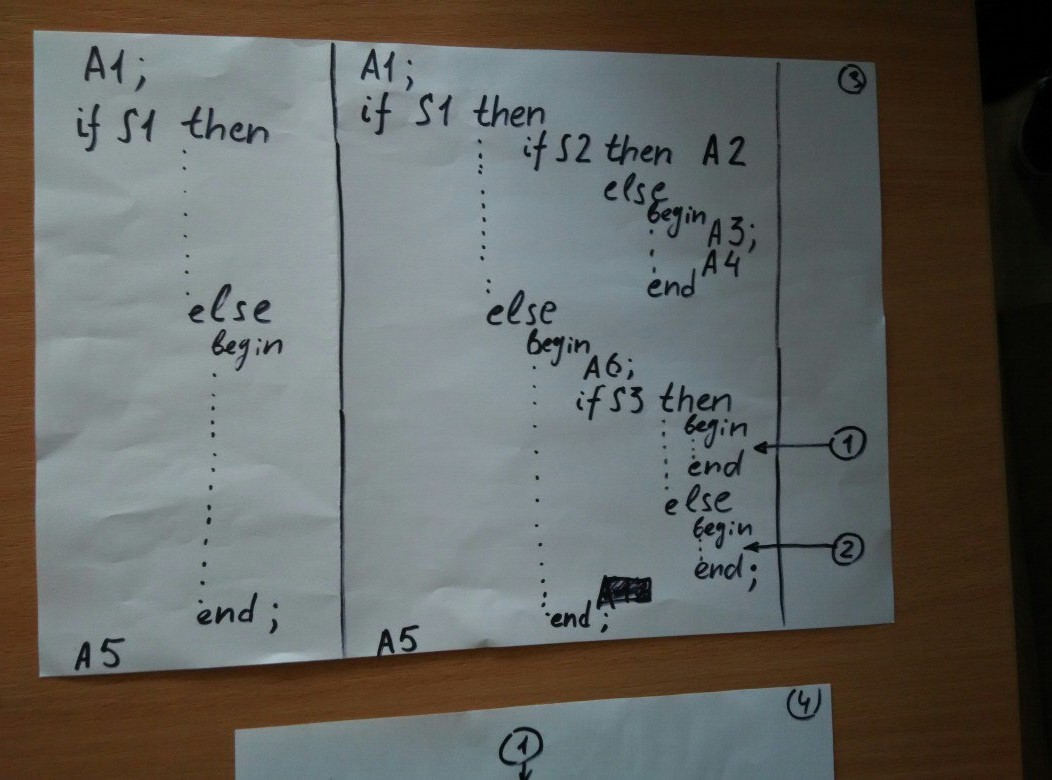 A1;
if S1 then
else
begin
end;
A5
A1;
if S1 then
if S2 then A2
else
begin
A3;
A4
end
else
begin
A6;
if S3 then
begin
end
else
begin
end;
end;
A5
3
1
2
(4)
1